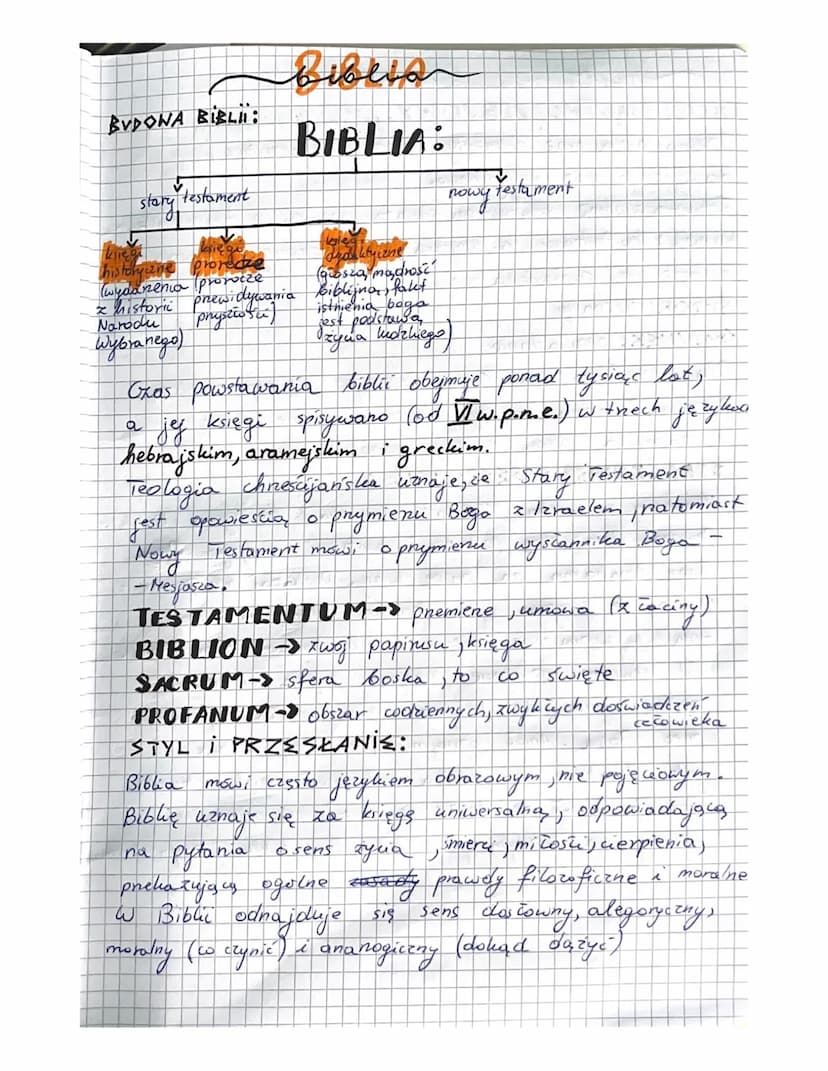 BIBLIA
biblia
BUDOWA BIBLII:
BIBLIA:
stary testament
nowy testament
księgi
historyczne
(wydarzenia
z historii
Narodu
Wybranego)
księgi
prorocze
(prorocze
przewidywania
przyszłości)
księgi
dydaktyczne
(głoszą mądrość
biblijną, fakt
istnienia boga
jest podstawą
życia ludzkiego)
Czas powstawania biblii obejmuje ponad tysiąc lat,
a jej księgi spisywano (od VI w.p.n.e.) w trzech języka
hebrajskim, aramejskim i greckim.
Teologia chrześcijańska uznaje, że Stary Testament
jest opowieścią o przymierzu Boga z Izraelem, natomiast
Nowy Testament mówi o przymierzu wysłannika Boga -
- Mesjasza.
TESTAMENTUM -> przemierze, umowa (z łaciny)
BIBLION -> zwój papirusu, księga
SACRUM -> sfera boska, to co święte
PROFANUM -> obszar codziennych, zwykłych doświadczeń
człowieka
STYL i PRZESŁANIE:
Biblia mówi często językiem obrazowym, nie pojęciowym.
Biblię uznaje się za księgę uniwersalną, odpowiadającą
na pytania o sens życia, śmierci, miłości, cierpienia,
przekazującą ogólne zasady prawdy filozoficzne i moralne
W Biblii odnajduje się sens dosłowny, alegoryczny,
moralny (co czynić) i ananogiczny (dokąd dążyć)